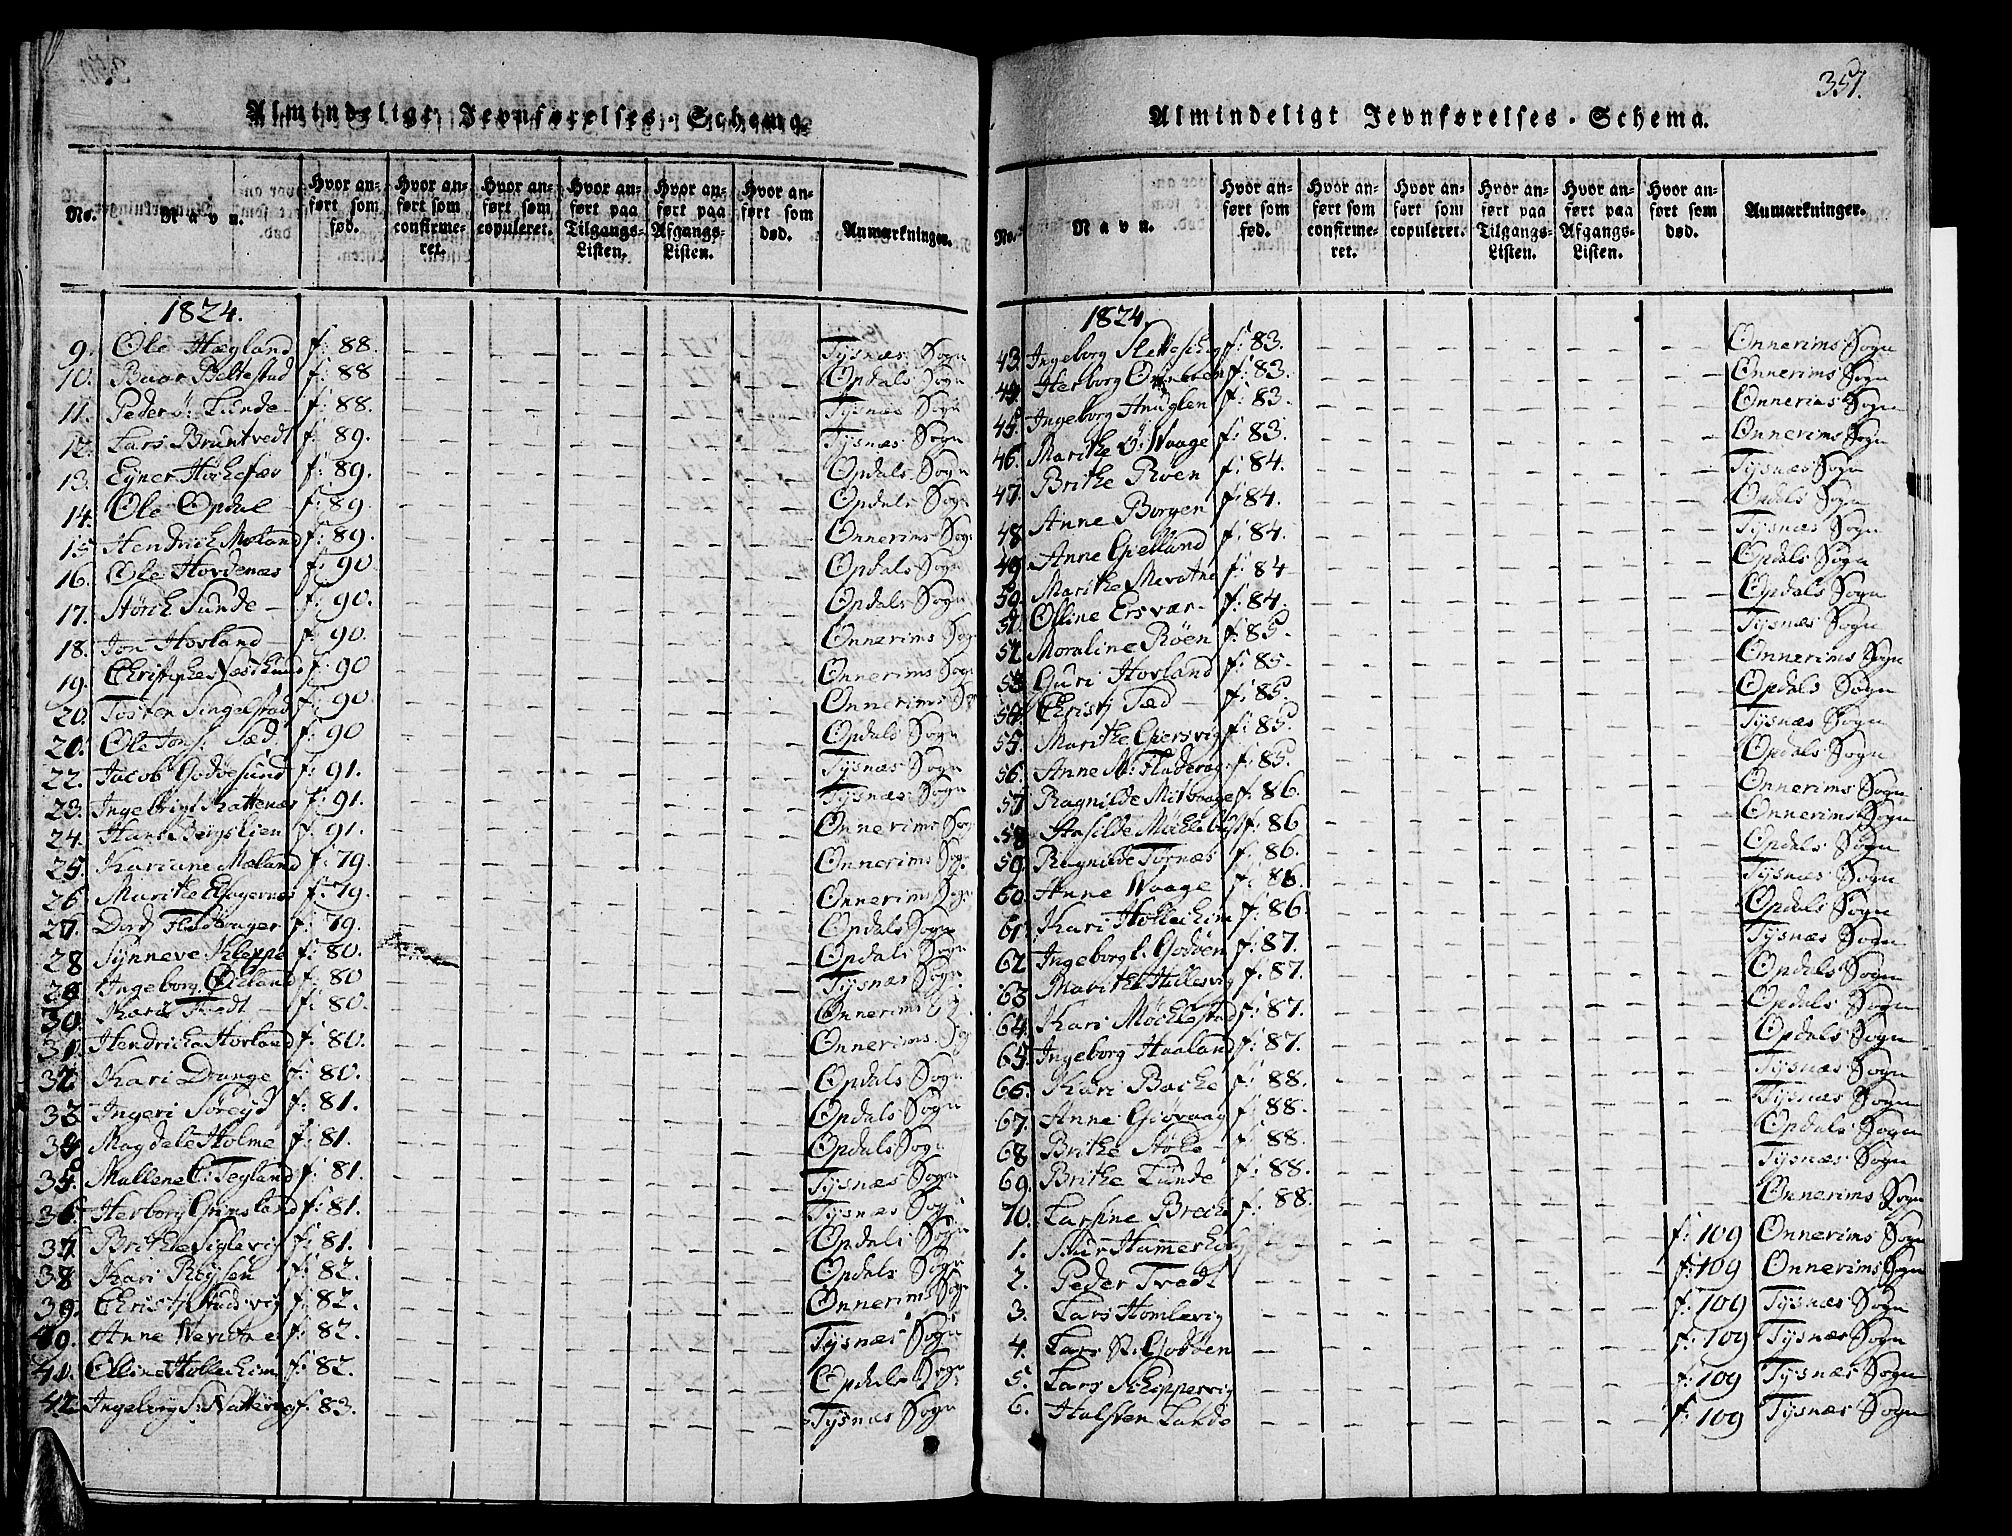 Almindeligt Jevnførelses-Schema.
No.
Navn.
Hvor anført som fød.
Hvor anført som confirmeret.
Hvor anført som copuleret.
Hvor anført paa Tilgangs-Listen.
Hvor anført paa Afgangs-Listen.
Hvor anført som død.
Anmærkninger.
1824.
9. Ole Hægland f: 88. Tysnæs Sogn
10. Baar Beltestad f: 88 Opdals Sogn
11. Peder Ø: Lunde f: 88. Tysnæs Sogn
12. Lars Bruntvedt f: 89. Tysnæs Sogn
13. Eyner f: 89. Opdals Sogn
14. Ole Opdal f: 89. Opdals Sogn
15. Hendrich Moland f: 89. Onnerims Sogn
16. Ole Hovdenæs f: 90 Opdals Sogn
17. Størk Sunde f: 90. Opdals Sogn
18. Jon Hovland f: 90. Onnerims Sogn
19. f: 90 Onnerims Sogn
20. Tosten Singelstad f: 90 Onnerims Sogn
20. Ole Jons: Sæd f: 90 Opdals Sogn
22. Jacob Godøesund f: 91. Tysnæs Sogn
23. f: 91. Tysnæs Sogn
24. Hans Bergslien f: 91. Onnerims Sogn
25. Kariane Moland f: 79. Onnerims Sogn
26. Marithe f: 79. Onnerims Sogn
27. f: 79. Opdals Sogn
28 Synneve Kleppe f: 80. Opdals Sogn
29 Ingeborg f: 80 Tysnæs Sogn
30. Kari Tvedt f: 80. Onnerims S.
31. Hendricha Hovland f: 80. Onnerims Sogn
32 Kari Drange f: 80. Opdals Sogn
33 Ingeri Søreyd f: 81. Opdals Sogn
34 Magdele Holme f: 81. Opdals Sogn
35. Mallene C: Tegland f: 81. Tysnæs Sogn
36. Herborg Grimsland f: 81. Tysnæs Sogn
37. Brithe Siglevig f: 81. Opdals Sogn
38 Kari Røysen f: 82. Opdals Sogn
39. f: 82. Onnerims Sogn
40. Anne f: 82. Tysnæs Sogn
41. Olline Hollechim f: 82. Opdals Sogn
42 f: 83. Tysnæs Sogn
351.
Almindeligt Jevnførelses-Schema.
No.
Navn.
Hvor anført som fød.
Hvor anført som confirmeret.
Hvor anført som copuleret.
Hvor anført paa Tilgangs-Listen.
Hvor anført paa Afgangs-Listen.
Hvor anført som død.
Anmærkninger.
1824.
43. Ingeborg f: 83. Onnerims Sogn
44. Herborg f: 83. Onnerims Sogn
45. Ingeborg Hnuglen f: 83. Onnerims Sogn
46. Marithe Ø: Waage f: 83. Onnerims Sogn
47. Brithe Røen f: 84. Tysnæs Sogn
48. Anne Borgen f: 84. Opdals Sogn
49. Anne Gielland f: 84. Tysnæs Sogn
50. Marithe f: 84 Opdals Sogn
51. Olline Ersvær f: 84. Opdals Sogn
52 Moraline Røen f: 85. Tysnæs Sogn
53 Guri Hovland f: 85. Onnerims Sogn
54. Christj Sæd f: 85. Opdals Sogn
55. Marithe Giersvig f: 85. Tysnæs Sogn
56. Anne M: f: 85. Opdals Sogn
57. Ragnilde f: 86. Onnerims Sogn
58 f: 86 Onnerims Sogn
59. Ragnilde Tornæs f: 86. Opdals Sogn
60. Anne Waage f: 86. Tysnæs Sogn
61. Kari Hollechim f: 86. Opdals Sogn
62 Ingeborg L: Godøen f: 87. Tysnæs Sogn
63 Marithe Hillesvig f: 87. Opdals Sogn
64. Kari Møchlestad f: 87. Opdals Sogn
65. Ingeborg Haaland f: 87. Opdals Sogn
66. Kari Bache f: 88. Tysnæs Sogn
67. Anne Giøvaag f: 88. Tysnæs Sogn
68 Brithe Støle f: 88. Opdals Sogn
69. Brithe Lunde f: 88. Tysnæs Sogn
70. Larsine Breche f: 88. Onnerims Sogn
1. f: 109 Onnerims Sogn
2. Peder Tvedt f: 109 Onnerims Sogn
3. Lars Homlevig f: 109 Tysnæs Sogn
4. Lars St: Godøen f: 109 Tysnæs Sogn
5. Lars Skippervig f: 109 Tysnæs Sogn
6. Halsten Lunde f: 109 Tysnæs Sogn